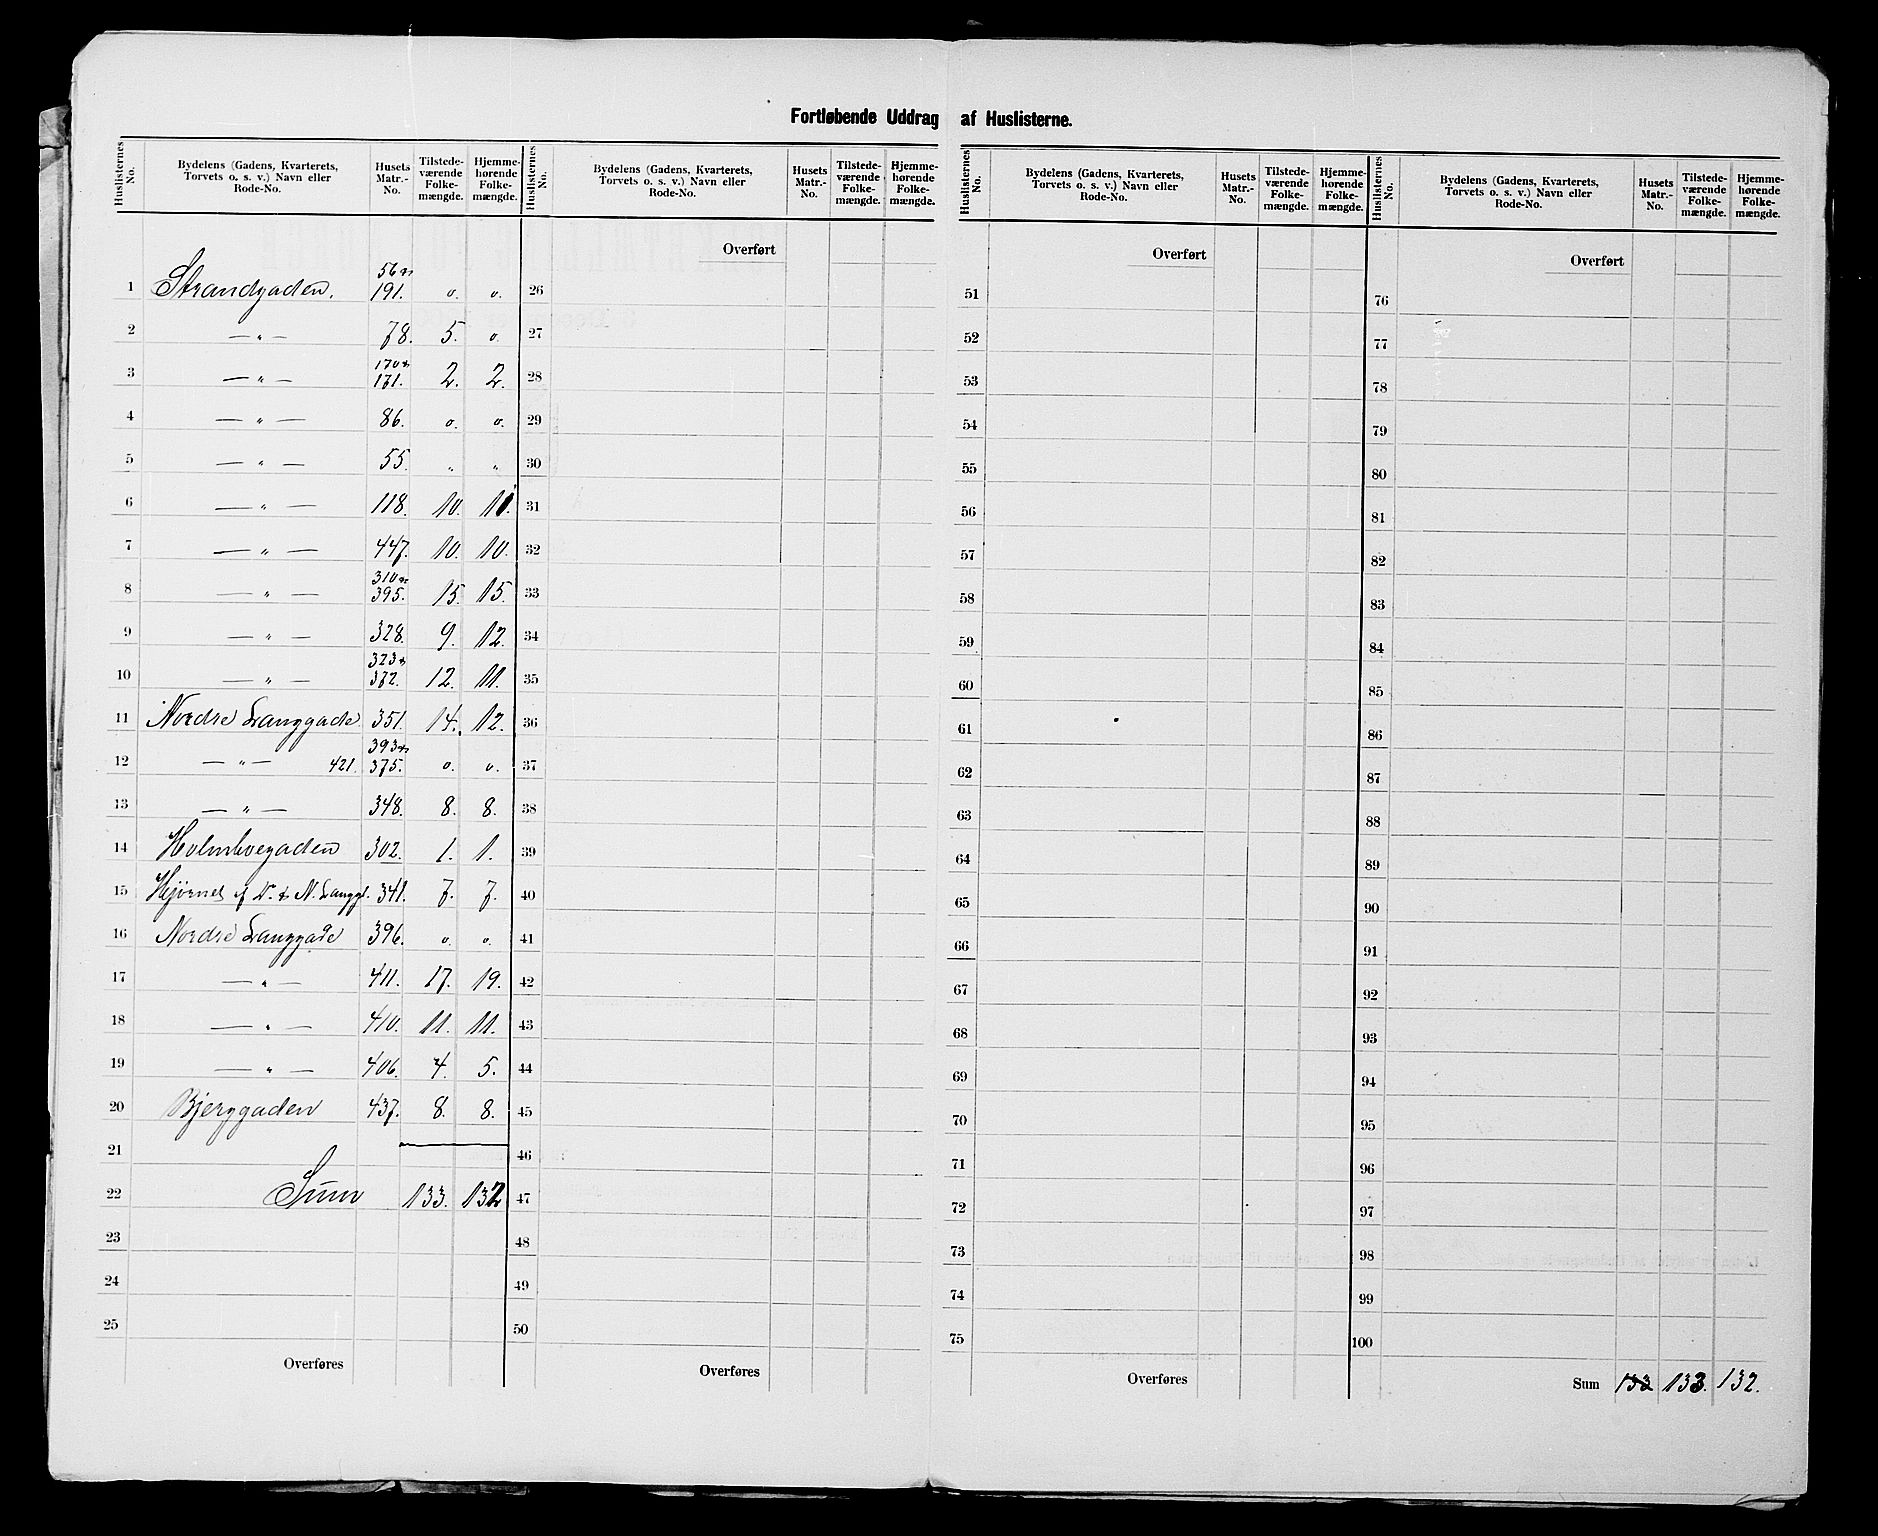 Fortløbende Uddrag af Huslisterne.
Huslisternes No. | Bydelens (Gadens, Kvarterets, Torvets o. s. v.) Navn eller Rode-No. | Husets Matr.-No. | Tilstedeværende Folkemængde. | Hjemmehørende Folkemængde. | Huslisternes No. | Bydelens (Gadens, Kvarterets, Torvets o. s. v.) Navn eller Rode-No. | Husets Matr.-No. | Tilstedeværende Folkemængde. | Hjemmehørende Folkemængde. | Huslisternes No. | Bydelens (Gadens, Kvarterets, Torvets o. s. v.) Navn eller Rode-No. | Husets Matr.-No. | Tilstedeværende Folkemængde. | Hjemmehørende Folkemængde. | Huslisternes No. | Bydelens (Gadens, Kvarterets, Torvets o. s. v.) Navn eller Rode-No. | Husets Matr.-No. | Tilstedeværende Folkemængde. | Hjemmehørende Folkemængde.
Overført | Overført | Overført
1 Strandgaden. 56 & 191. o. o. 26 51 76
2 — " — 78. 5. o. 27 52 77
3 — " — 170 & 171. 2. 2. 28 53 78
4 — " — 86. o. o. 29 54 79
5 — " — 55. " " 30 55 80
6 — " — 118. 10. 11. 31 56 81
7 — " — 447. 10. 10. 32 57 82
8 — " — 310 & 395. 15. 15. 33 58 83
9 — " — 328. 9. 12. 34 59 84
10 — " — 323 & 372. 12. 11. 35 60 85
11 Nordre Langgade. 351. 14. 12. 36 61 86
12 — " — 421. 393 & 375. o. o. 37 62 87
13 — " — 348. 8. 8. 38 63 88
14 Holmbvegaden 302. 1. 1. 39 64 89
15 Hjørnet af V. & N. Langgd. 341. 7. 7. 40 65 90
16 Nordre Langgade 396. o. o. 41 66 91
17 — " — 411. 17. 19. 42 67 92
18 — " — 410. 11. 11. 43 68 93
19 — " — 406. 4. 5. 44 69 94
20 Bjerggaden 437. 8. 8. 45 70 95
21 46 71 96
22 Sum 133. 132 47 72 97
23 48 73 98
24 49 74 99
25 50 75 100
Overføres Overføres Overføres Sum 132 133. 132.